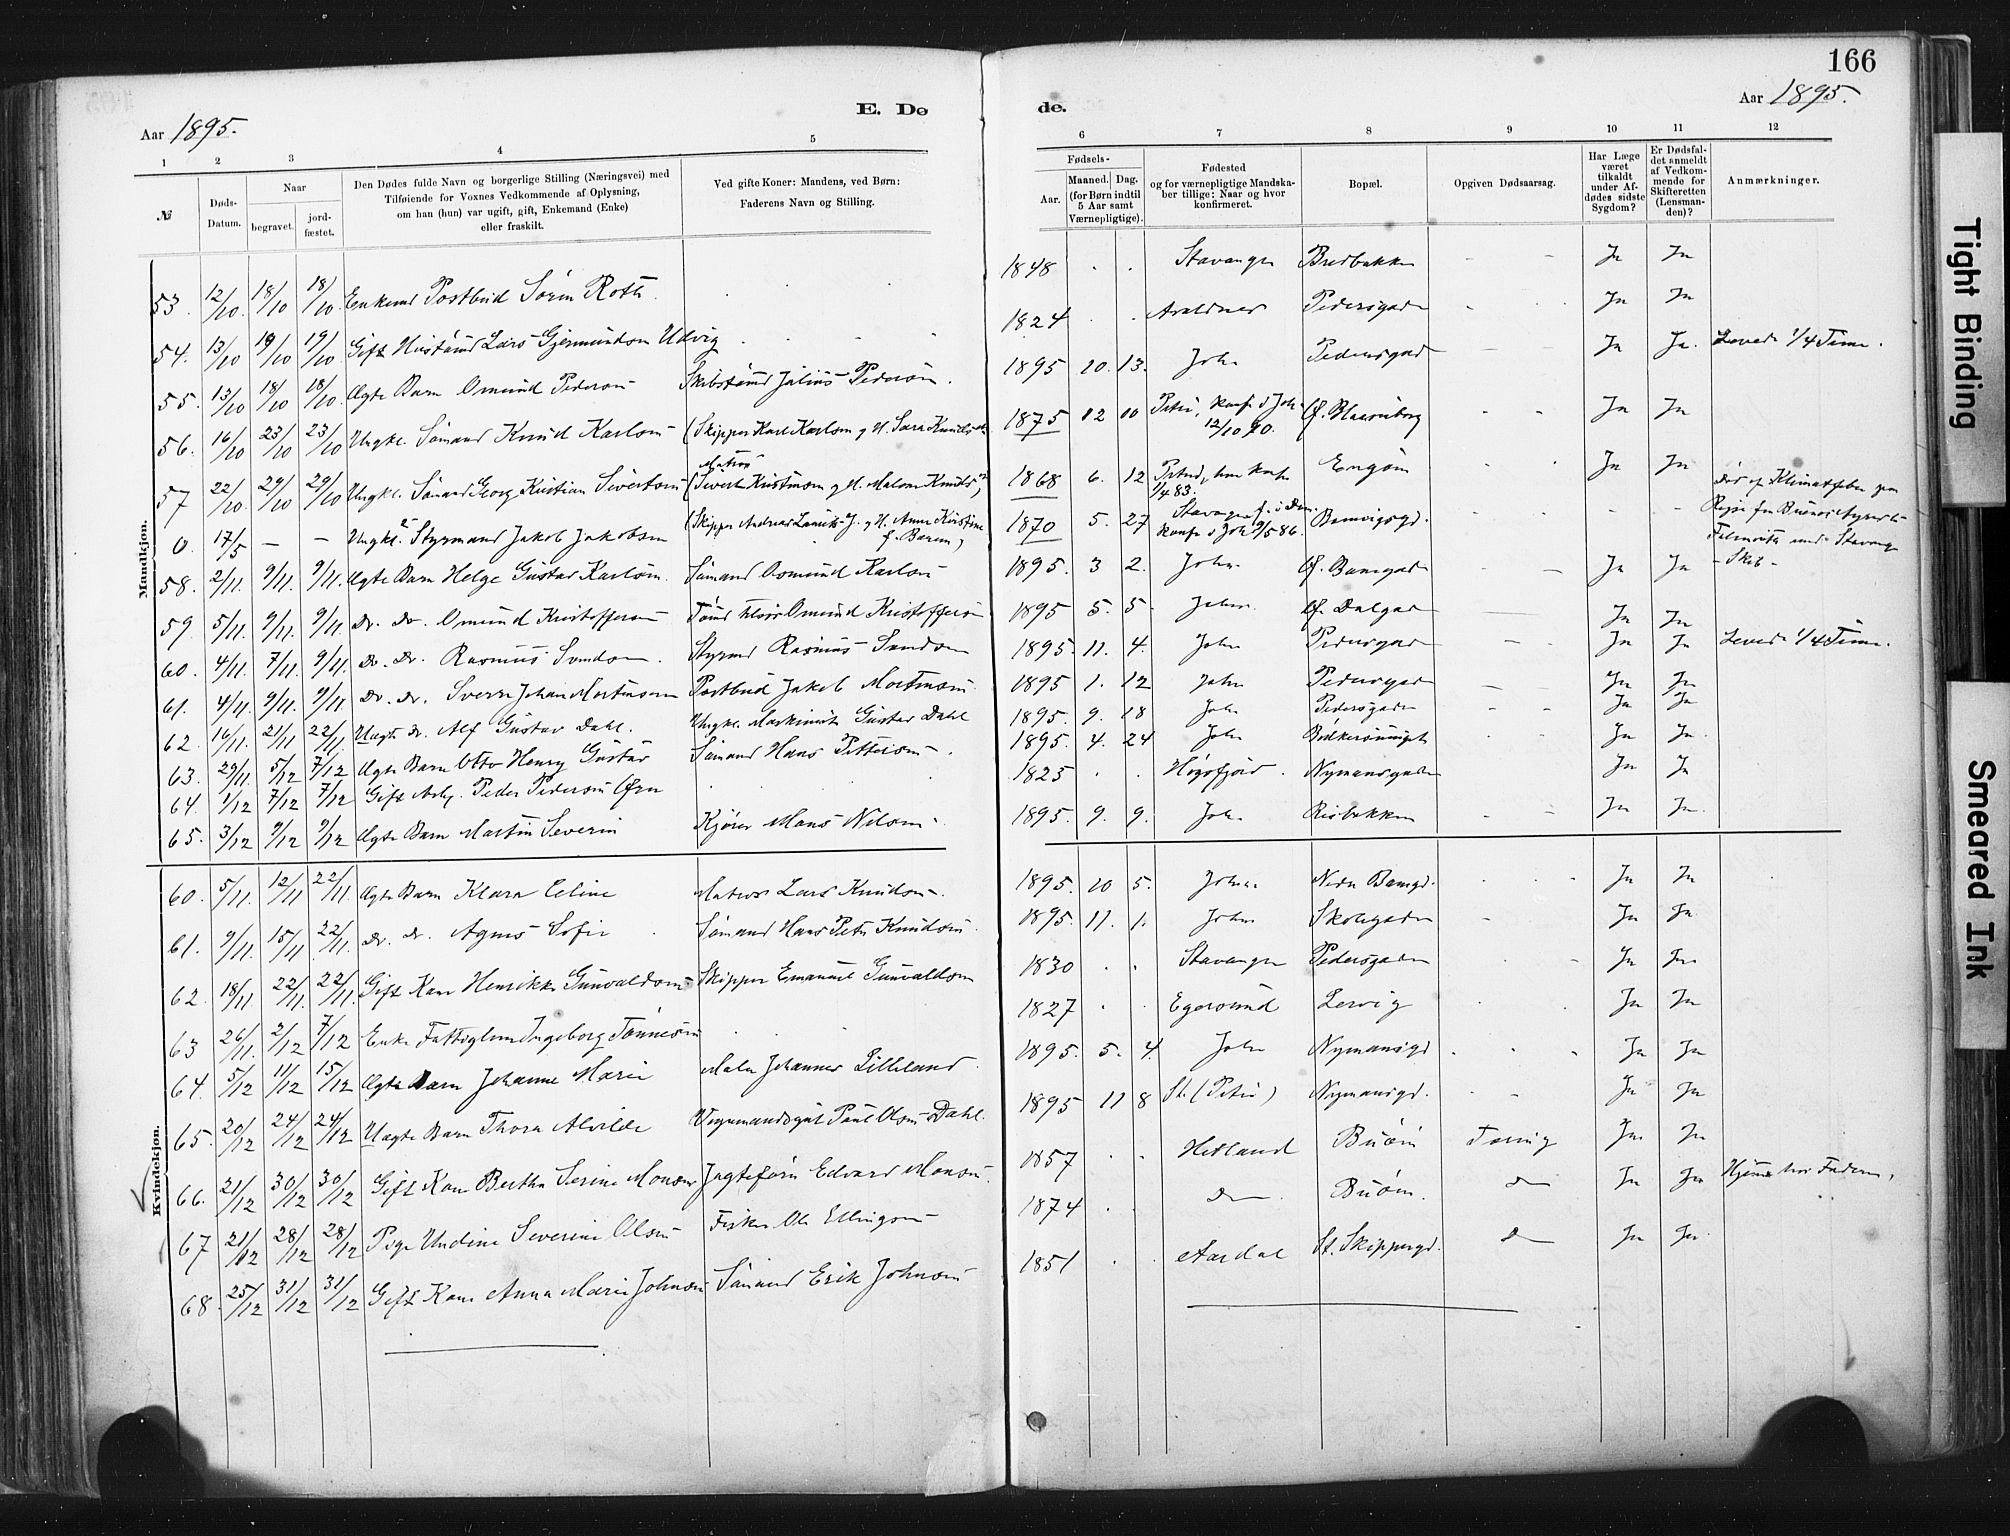 166
E. Dø de.
Aar 1895. Aar 1895.
1 2 3 4 5 6 7 8 9 10 11 12
№
Døds-Datum.
Naar
begravet. jordfæstet.
Den Dødes fulde Navn og borgerlige Stilling (Næringsvei) med
Tilføiende for Voxnes Vedkommende af Oplysning,
om han (hun) var ugift, gift, Enkemand (Enke)
eller fraskilt.
Ved gifte Koner: Mandens, ved Børn:
Faderens Navn og Stilling.
Fødsels-
Aar. Maaned. Dag.
(for Børn indtil
5 Aar samt
Værnepligtige).
Fødested
og for værnepligtige Mandska-
ber tillige: Naar og hvor
konfirmeret.
Bopæl.
Opgiven Dødsaarsag.
Har Læge
været
tilkaldt
under Af-
dødes sidste
Sygdom?
Er Dødsfal-
det anmeldt
af Vedkom-
mende for
Skifteretten
(Lensman-
den)?
Anmærkninger.
Mandkjøn.
53. 12/10 18/10 18/10 Enkemd Postbud Sørn Roth 1848 Stavanger Bredbakken Ja Ja
54. 13/10 19/10 19/10 Gift Hustømd Lars Gjermundsen Udvig 1824 Pedersgaden Ja Ja
55. 13/10 18/10 18/10 Ægte Barn Omund Pedersen Skibstømd Julius Pedersen. 1895 10. 13. Joh. Pedersgad Ja Ja. Levede 1/4 Time.
56. 16/10 23/10 23/10 Ungkl. Sømand Knud Karlsen (Skipper Karl Karlsen g H. Sara 1875 12 10 Petri, konf. i Joh. 12/10 90. Ja Ja
57. 22/10 29/10 29/10 Ungkl. Sømand Georg Kristian Sivertsen (Matros Sivert g H. Malene 1868 6. 12 1/4 83. Engøen Ja Ja
0. 17/5 — — Ungkl. Styrmand Jakob Jakobsen (Skipper Andreas J. g H. Anne Kirstine f. 1870 5. 27 Stavanger konf. i Joh. 5 86. død af Klimatfeber paa Rejse fra Buenos Ayres med Stavanger Skib
58. 2/11. 9/11. 9/11. Ægte Barn Helge Gustav Karlsen. Sømand Osmund Karlsen 1895. 3 2. Joh. Ja Ja
59 5/11. 9/11. 9/11. Do. Do. Omund Kristoffersen Omund Kristoffersen 1895 5. 5. Joh. Ø. Dalgad Ja Ja
60. 4/11. 7/11. 9/11. Do. Do. Rasmus Svendsen. Styrmd Rasmus Svendsen 1895. 11. 4. Joh. Pedersgad Ja Ja Levede 1/4 Time.
61. 4/11. 9/11. 9/11. Do. Do. Sverre Johan Mortensen Postbud Jakob Mortensen 1895 1. 12 Joh. Pedersgad Ja Ja
62. 16/11. 21/11 22/11. Uægte Do. Alf Gustav Dahl. Ungkl. Maskinist Gustav Dahl 1895. 9. 18 Joh. Pedersgaden Ja Ja
63. 29/11. 5/12 7/12 Ægte Barn Otto Henry Gustav Sømand Hans Pettersen. 1895. 4. 24 Joh. Ja Ja.
64. 1/12 7/12 7/12 Gift Arb. Peder Pedersen Øen 1825 Høgsfjord. Nymansgaden Ja Ja
65. 3/12 9/12 9/12 Ægte Barn Martin Severin Kjører Mons Nilsen. 1895. 9. 9. Joh. Risbakken Ja Ja.
Kvindekjøn.
60. 5/11. 12/11 22/11. Ægte Barn Klara Eline Matros Lars Knudsen. 1895. 10 5. Joh. Nedre Bangd. Ja Ja
61. 9/11. 15/11 22/11. Do. Do. Agnes Sofie Sømand Hans Petter Knudsen. 1895. 11. 1. Joh. Skolegaden Ja Ja
62. 18/11. 22/11. 22/11. Gift Kone Henrikke Gunvaldsen Skipper Emanuel Gunvaldsen 1830 Stavanger Pedersgaden Ja Ja
63 26/11. 2/12 7/12 Enke Fattiglem Ingeborg Tønnesen 1827 Egersund Lervig Ja Ja
64. 5/12 11/12 15/12 Ægte Barn Johanne Marie Maler Johannes Lilleland 1895. 5. 4. Joh. Nymansgd Ja Ja
65. 20/12 24/12 24/12 Uægte Barn Thora Alvilde Paul Olsen Dahl. 1895 11 8 St. (Petri) Nymansgd. Ja Ja
66. 21/12 30/12 30/12 Gift Kone Bertha Serine Monsen Jagtefører Edvard Monsen. 1857 Hetland Buøen Tæring Ja Ja
67 21/12 28/12 28/12 Pige Undine Severine Olsen Fisker Ole Ellingsen 1874 Do Buøen. Do Ja Ja Hjemme hos Faderen,
68. 25/12 31/12 31/12 Gift Kone Anna Marie Johnsen Sømand Erik Johnsen 1851 Aardal St. Skippergd. Do Ja Ja.
Tight Binding
Smeared Ink